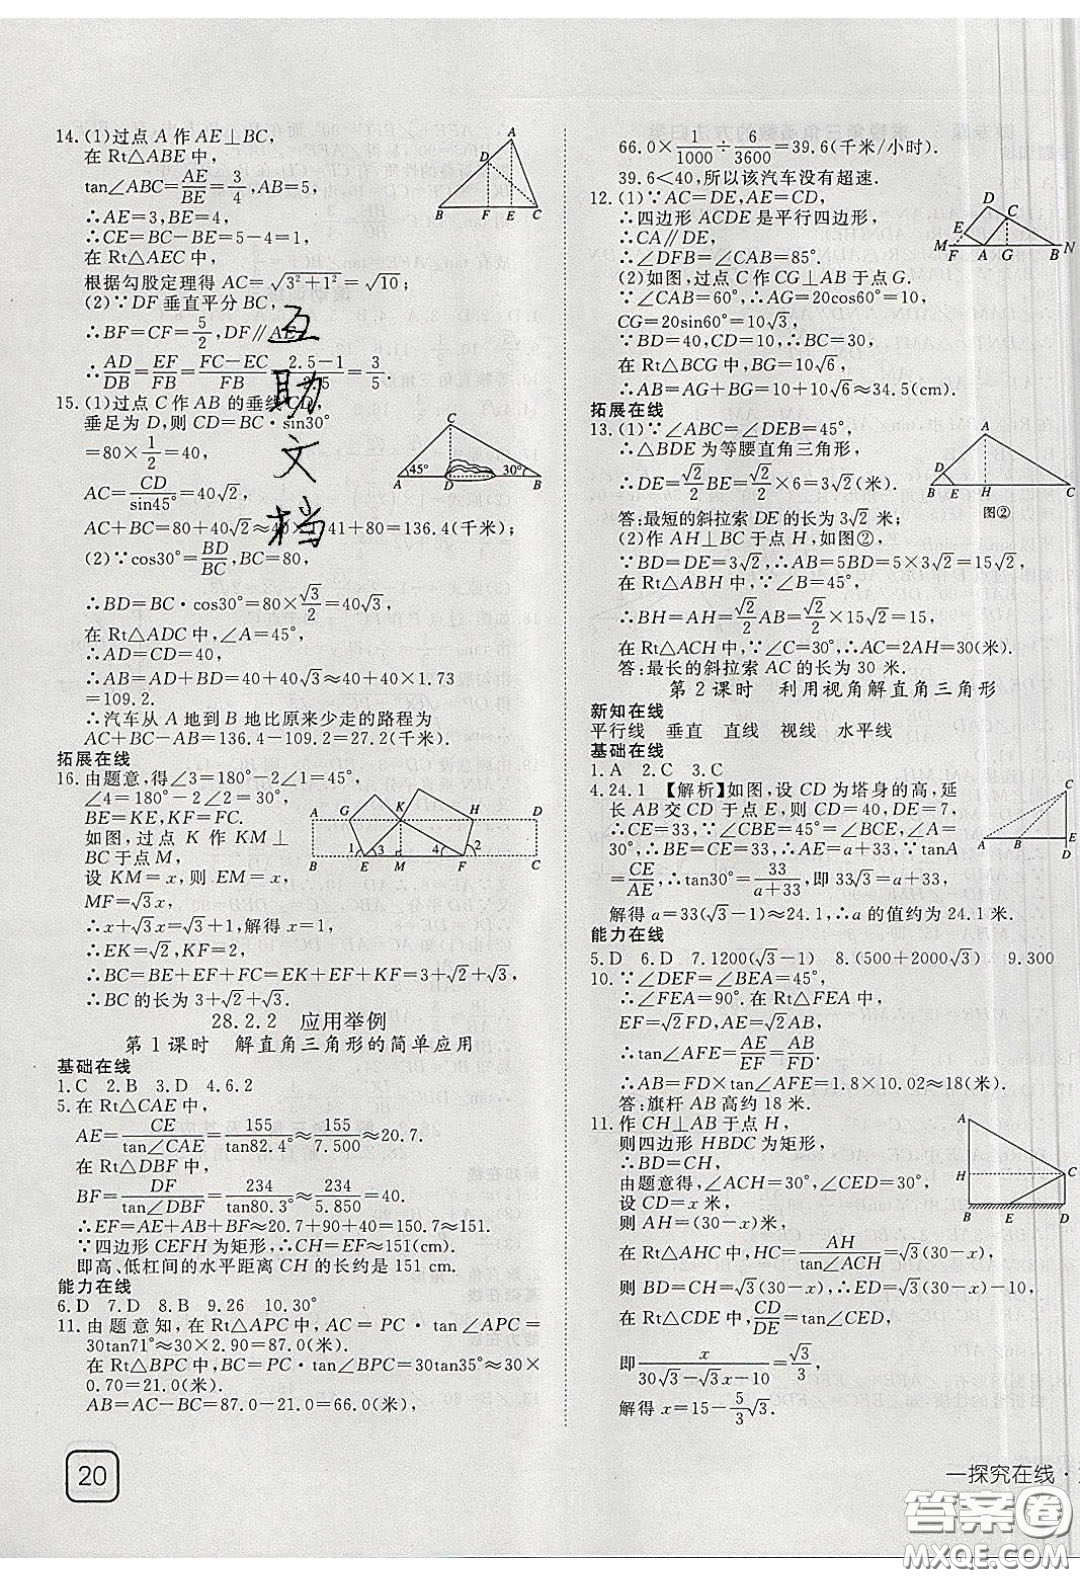 14. (1)过点 A 作 AE⊥BC,
在 Rt△ABE 中,
tan∠ABC=AE/BE=3/4,AB=5,
∴AE=3,BE=4,
∴CE=BC−BE=5−4=1,
在 Rt△AEC 中,
根据勾股定理得 AC=√(3²+1²)=√10;
(2)∵DF 垂直平分 BC,
∴BF=CF=5/2,DF∥AE,
∴AD/DB=EF/FB=(FC−EC)/FB=(2.5−1)/2.5=3/5.
15. (1)过点 C 作 AB 的垂线 CD,
垂足为 D,则 CD=BC·sin30°
=80×1/2=40,
AC=CD/sin45°=40√2,
AC+BC=80+40√2≈40×1.41+80=136.4(千米);
(2)∵cos30°=BD/BC,BC=80,
∴BD=BC·cos30°=80×√3/2=40√3,
在 Rt△ADC 中,∠A=45°,
∴AD=CD=40,
∴AB=AD+BD=40+40√3≈40+40×1.73
=109.2.
∴汽车从 A 地到 B 地比原来少走的路程为
AC+BC−AB=136.4−109.2=27.2(千米).
拓展在线
16. 由题意,得∠3=180°−2∠1=45°,
∠4=180°−2∠2=30°,
BE=KE,KF=FC.
如图,过点 K 作 KM⊥
BC于点 M,
设 KM=x,则 EM=x,
MF=√3x,
∴x+√3x=√3+1,解得 x=1,
∴EK=√2,KF=2,
∴BC=BE+EF+FC=EK+EF+KF=3+√2+√3,
∴BC 的长为 3+√2+√3.
28.2.2 应用举例
第 1 课时 解直角三角形的简单应用
基础在线
1.C 2.B 3.D 4.6.2
5. 在 Rt△CAE 中,
AE=CE/tan∠CAE=155/tan82.4°≈155/7.500≈20.7.
在 Rt△DBF 中,
BF=DF/tan∠DBF=234/tan80.3°≈234/5.850=40.
∴EF=AE+AB+BF≈20.7+90+40=150.7≈151.
∵四边形 CEFH 为矩形,∴CH=EF≈151(cm).
即高、低杠间的水平距离 CH 的长约是 151 cm.
能力在线
6.D 7.D 8.B 9.26 10.30°
11. 由题意知,在 Rt△APC 中,AC=PC·tan∠APC=
30tan71°≈30×2.90=87.0(米).
在 Rt△BPC 中,BC=PC·tan∠BPC=30tan35°≈30×
0.70=21.0(米).
AB=AC−BC=87.0−21.0=66.0(米),
20
66.0×1/1000÷6/3600=39.6(千米/小时).
39.6<40,所以该汽车没有超速.
12. (1)∵AC=DE,AE=CD,
∴四边形 ACDE 是平行四边形,
∴CA∥DE,
∴∠DFB=∠CAB=85°.
(2)如图,过点 C 作 CG⊥AB 于点 G.
∵∠CAB=60°,∴AG=20cos60°=10,
CG=20sin60°=10√3,
∵BD=40,CD=10,∴BC=30,
在 Rt△BCG 中,BG=10√6,
∴AB=AG+BG=10+10√6≈34.5(cm).
拓展在线
13. (1)∵∠ABC=∠DEB=45°,
∴△BDE 为等腰直角三角形,
∴DE=√2/2BE=√2/2×6=3√2(米).
答:最短的斜拉索 DE 的长为 3√2 米;
(2)作 AH⊥BC 于点 H,如图②,
∵BD=DE=3√2,∴AB=5BD=5×3√2=15√2,
在 Rt△ABH 中,∵∠B=45°,
∴BH=AH=√2/2AB=√2/2×15√2=15,
在 Rt△ACH 中,∵∠C=30°,∴AC=2AH=30(米).
答:最长的斜拉索 AC 的长为 30 米.
图②
第 2 课时 利用视角解直角三角形
新知在线
平行线 垂直 直线 视线 水平线
基础在线
1.A 2.C 3.C
4.24.1 【解析】如图,设 CD 为塔身的高,延
长 AB 交 CD 于点 E,则 CD=40,DE=7,
∴CE=33,∵∠CBE=45°=∠BCE,∠A=
30°,∴BE=CE=33,∴AE=a+33,∵tanA
=CE/AE,∴tan30°=33/(a+33),即 33√3=a+33,
解得 a=33(√3−1)≈24.1,∴a 的值约为 24.1 米.
能力在线
5.D 6.D 7.1200(√3−1) 8.(500+2000√3) 9.300
10. ∵∠DEF=∠BEA=45°,
∴∠FEA=90°. 在 Rt△FEA 中,
EF=√2FD,AE=√2AB,
∴tan∠AFE=AE/EF=AB/FD.
∴AB=FD×tan∠AFE=1.8×10.02≈18(米).
答:旗杆 AB 高约 18 米.
11. 作 CH⊥AB 于点 H,
则四边形 HBDC 为矩形,
∴BD=CH,
由题意得,∠ACH=30°,∠CED=30°,
设 CD=x 米,
则 AH=(30−x)米,
在 Rt△AHC 中,HC=AH/tan∠ACH=√3(30−x),
则 BD=CH=√3(30−x),∴ED=√3(30−x)−10,
在 Rt△CDE 中,CD/DE=tan∠CED,
即x/(30√3−√3x−10)=√3/3,
解得 x=15−5/3√3.
一探究在线·
互助文档
答案圈
MXQE.COM